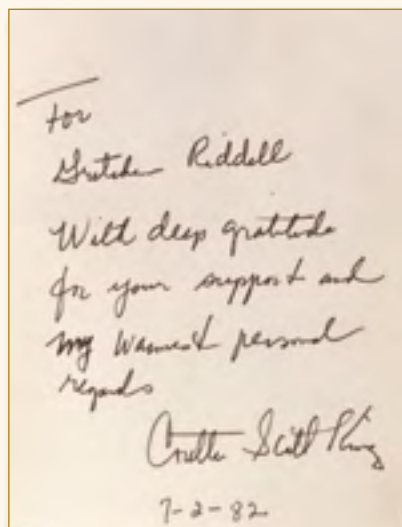 For
Gretchen Riddell
With deep gratitude
for your support and
my warmest personal
regards
Coretta Scott King
7-2-82